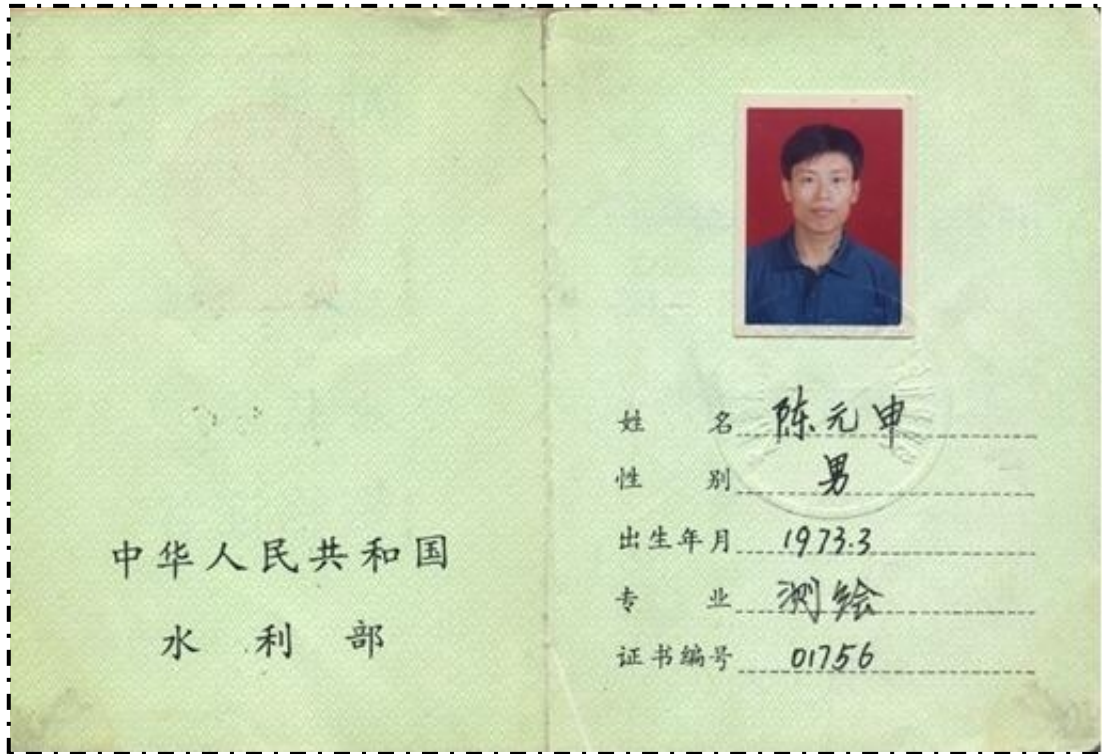 中华人民共和国
水利部
姓名 陈元申
性别 男
出生年月 1973.3
专业 测绘
证书编号 01756